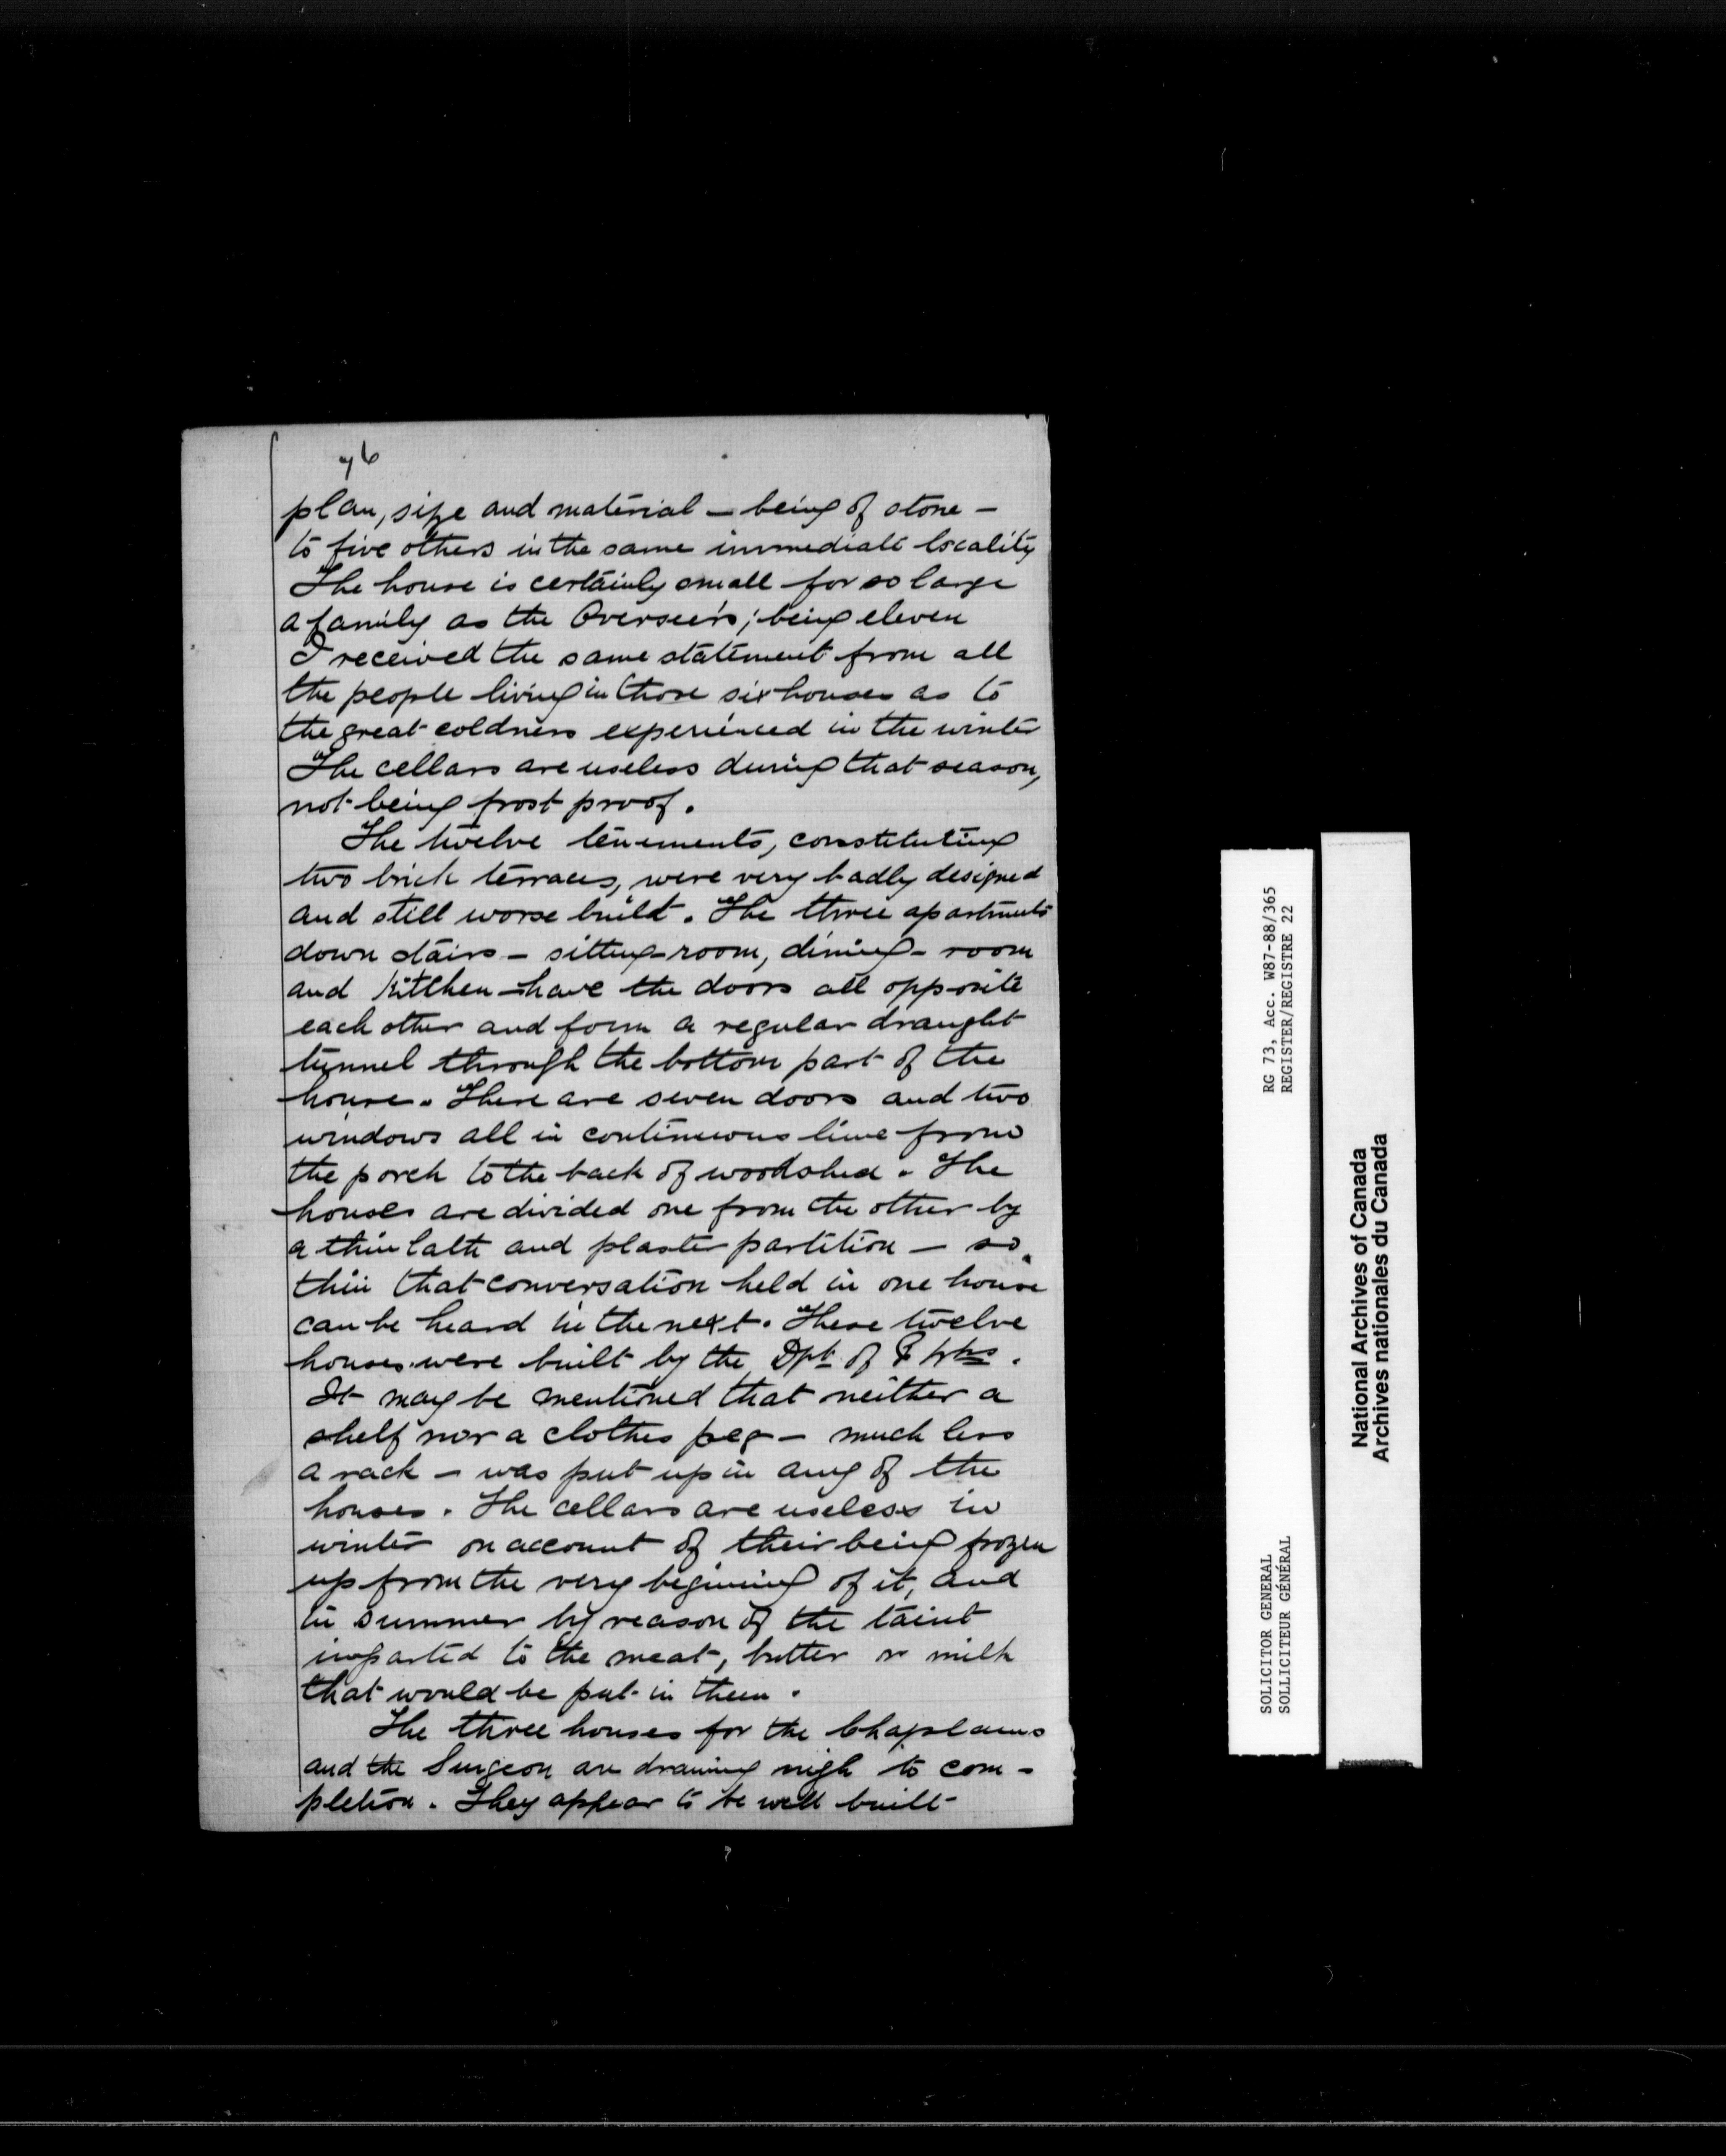 76
plan, size and material — being of stone —
to five others in the same immediate locality
The house is certainly small for so large
a family as the Overseer's; being eleven
I received the same statement from all
the people living in those six houses as to
the great coldness experienced in the winter
The cellars are useless during that season,
not being frost proof.
The twelve tenements, constituting
two brick terraces, were very badly designed
and still worse built. The three apartments
down stairs — sitting-room, dining-room
and kitchen — have the doors all opposite
each other and form a regular draught
tunnel through the bottom part of the
house. There are seven doors and two
windows all in continuous line from
the porch to the back of woodshed. The
houses are divided one from the other by
a thin lath and plaster partition — so
thin that conversation held in one house
can be heard in the next. These twelve
houses were built by the Dpt. of P Wks.
It may be mentioned that neither a
shelf nor a clothes peg — much less
a rack — was put up in any of the
houses. The cellars are useless in
winter on account of their being frozen
up from the very begining of it, and
in summer by reason of the taint
imparted to the meat, butter or milk
that would be put in them.
The three houses for the Chaplains
and the Surgeon are drawing nigh to com-
pletion. They appear to be well built
RG 73, Acc. W87-88/365
REGISTER/REGISTRE 22
SOLICITOR GENERAL
SOLLICITEUR GÉNÉRAL
National Archives of Canada
Archives nationales du Canada